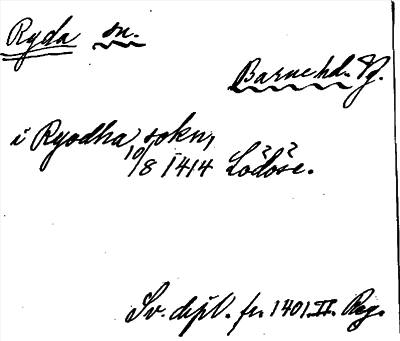 Ryda sn.
Barne hd. Vg.
i Ryodha sokn,
10/8 1414 Lödöse.
Sv. dipl. fr. 1401 II. Reg.